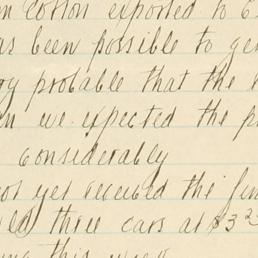 n cotton exported to E
as been possible to ge
ry probable that the
n we expected the p
considerably
not yet received the fin
three cars at $3 25
ing this week